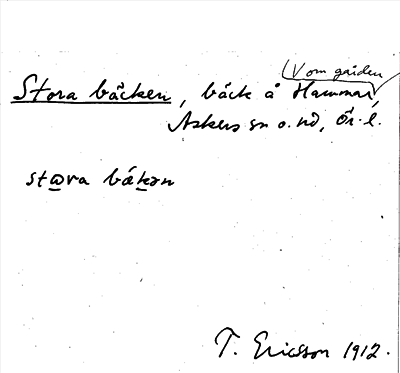 (V om gården
Stora bäcken, bäck å Hammar,
Askers sn o. hd, Ör. l.
stωra bäkən
T. Ericsson 1912.